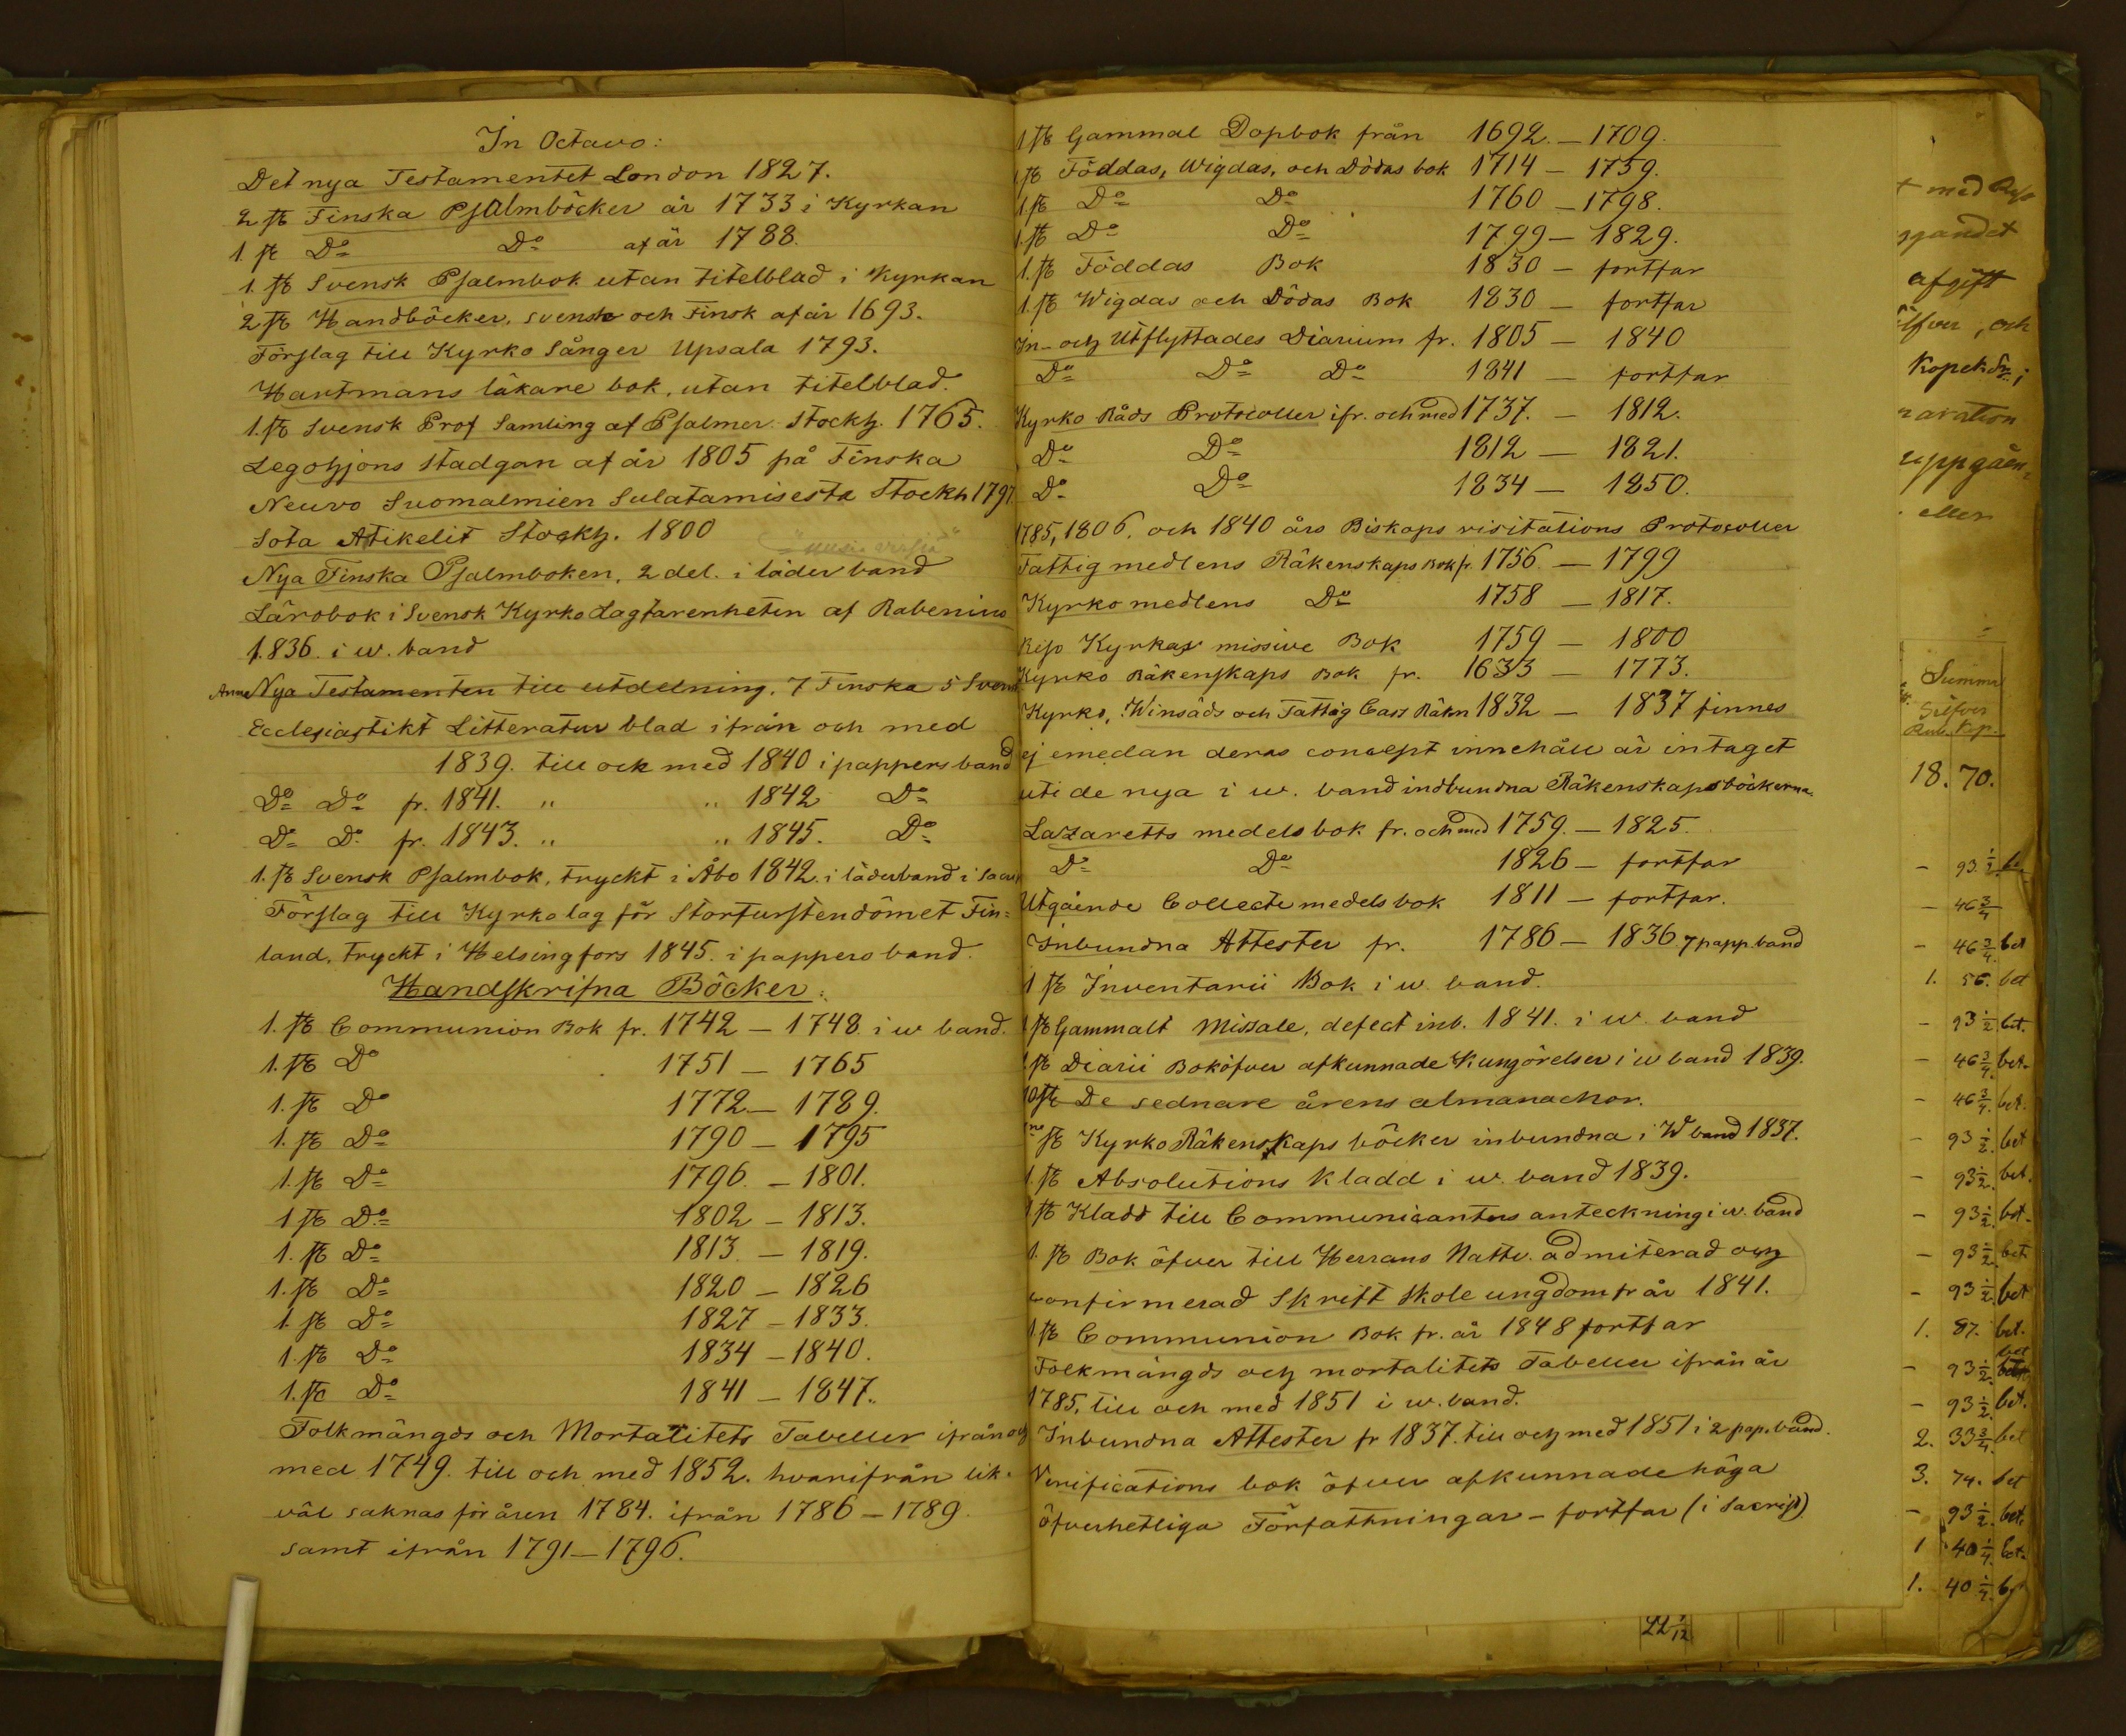 In Octavo:
Det nya Testamentet London 1827.
2 st Finska Psalmböcker år 1733 i Kyrkan
1 st Do Do af år 1788.
1. st Svensk Psalmbok utan titelblad i Kyrkan
2 st Handböcker, svensk och Finsk af år 1693.
Förslag till Kyrko Sånger Upsala 1793.
Hartmans läkare bok, utan titelblad.
1. st Svensk Prof Samling af Psalmer Stockh. 1765.
Legohjons stadgan af år 1805 på Finska
Neuvo Suomalmien Sulatamisesta Stockh 1797
Sota Atikelit Stockh. 1800
Nya Finska Psalmboken, 2 del. i läder band
Lärobok i Svensk Kyrko Lagfarenheten af Rabenius
1.836. i w. band
Nya Testamenten till utdelning. 7 Finska 5 Svens
Ecclesiastikt Litteratur blad ifrån och med
1839. till och med 1840 i pappers band
Do Do fr. 1841. " " 1842 Do
Do Do fr. 1843. " " 1845. Do
1. st Svensk Psalmbok, tryckt i Åbo 1842. i läderband i
Förslag till Kyrkolag för Storfurstendömet Fin=
land, tryckt i Helsingfors 1845. i pappers band.
Handskrifna Böcker:
1. st Communion Bok fr. 1742 – 1748 i w band.
1. st Do 1751 – 1765
1. st Do 1772 – 1789.
1. st Do 1790 – 1795
1. st Do 1796. – 1801.
1 st Do 1802 – 1813.
1. st Do 1813. – 1819.
1. st Do 1820 – 1826
1. st Do 1827 – 1833.
1. st Do 1834 – 1840.
1. st Do 1841 – 1847.
Folkmängds och Mortalitets Tabeller ifrån och
med 1749. till och med 1852. hvarifrån lik-
väl saknas för åren 1784. ifrån 1786 – 1789.
samt ifrån 1791 – 1796.
1 st Gammal Dopbok från 1692. – 1709.
1 st Föddas, Wigdas, och Dödas bok 1714 – 1759.
1. st Do Do 1760 – 1798.
1. st Do Do 1799 – 1829.
1. st Föddas Bok 1830 – fortfar
1. st Wigdas och Dödas Bok 1830 – fortfar
In- och Utflyttades Diarium fr. 1805 – 1840
Do Do Do 1841 – fortfar
Kyrko Råds Protocoller ifr. och med 1737. – 1812.
Do Do 1812 – 1821.
Do Do 1834 – 1850.
1785, 1806. och 1840 års Biskops visitations Protocoller
Fattig medlens Räkenskaps Bok fr. 1756 – 1799
Kyrko medlens Do 1758 – 1817.
Kyrkas missive Bok 1759 – 1800
Kyrko Räkenskaps Bok fr. 1633 – 1773.
Kyrko, Winsäds och Fattig Cass Räkn 1832 – 1837 finnes
ej emedan deras concept innehåll är intaget
uti de nya i w. band indbundna Räkenskapsböckerna.
Lazaretts medels bok fr. och med 1759. – 1825.
Do Do 1826 – fortfar
Utgående Collecte medels bok 1811 – fortfar.
Inbundna Attester fr. 1786 – 1836 7 papp. band
1 st Inventarii Bok i w. band.
1 st Gammalt Missale, defect inb. 1841. i w. band
1. st Diarii Bok öfver afkunnade Kungörelser i w band 1839.
10 st De sednare årens almanachor.
st Kyrko Räkenskaps böcker inbundna i W band 1837.
1. st Absolutions Kladd i w. band 1839.
1 st Kladd till Communicanters anteckning i w. band
1. st Bok öfver till Herrans Nattv. admiterad och
confirmerad Skrift skole ungdom fr år 1841.
1. st Communion Bok fr. år 1848 fortfar
Folkmängds och mortalitets Tabeller ifrån år
1785, till och med 1851 i w. band.
Inbundna Attester fr 1837. till och med 1851 i 2 pap. band.
Verifications bok öfver afkunnade höga
öfverhetliga Författningar – fortfar (i Sacrist)
22 1/12
afgift
och
Kopek Sr;
eller
Summa
Silfver
Rub. Kop.
18. 70.
– 93 1/2
– 46 3/4
– 46 3/4 bet
1. 56. bet
– 93 1/2 bet.
– 46 3/4. bet.
– 46 3/4. bet.
– 93 1/2. bet
– 93 1/2. bet.
– 93 1/2. bet.
– 93 1/2. bet
– 93 1/2. bet
1. 87. bet.
– 93 1/2. bet
– 93 1/2. bet.
2. 33 3/4. bet
3. 74. bet
– 93 1/2. bet.
1 40 1/4. bet.
1. 40 1/4.